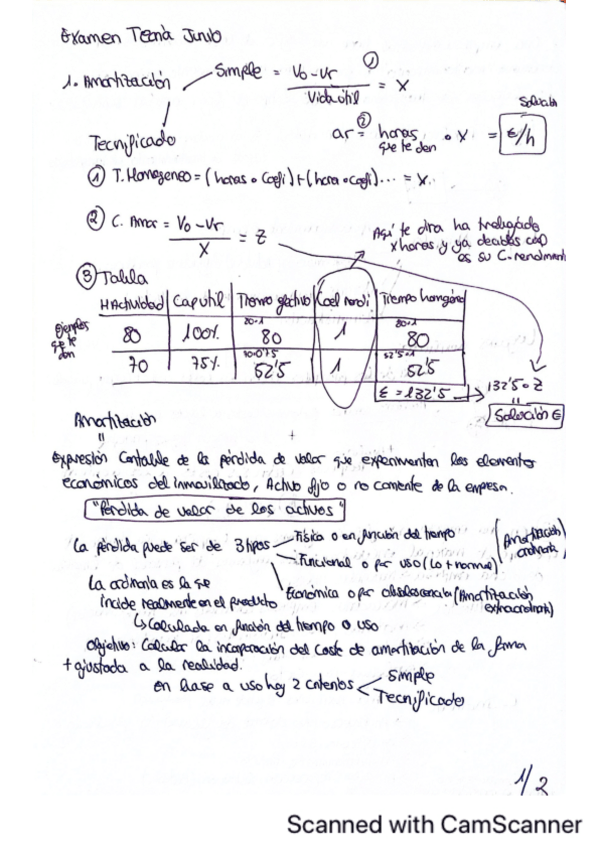 Examen Teoría Junio
1. Amortización
Simple = Vo-Vr / Vida útil = x
①
Tecnificado
② ar = horas que te den • x = €/h
Solución
① T. Homogeneo = (horas • Coefi) + (hora • coefi) ... = x
② C. Amor = Vo-Vr / x = Z
Aquí te dira ha trabajado
x horas y ya decides cual
es su C. rendiment
③ Tabla
H Actividad | Cap util | Tiempo efectivo | Coef rendi | Tiempo homogéneo
Ejemplos que te den
80 | 100% | 80·1 80 | 1 | 80·1 80
70 | 75% | 70·0'75 52'5 | 1 | 52'5·1 52'5
Σ = 132'5
132'5 • Z
Solución €
Amortización
"
Expresión Contable de la pérdida de valor que experimentan los elementos
económicos del inmovilizado, Activo fijo o no corriente de la empresa.
"Pérdida de valor de los activos"
La pérdida puede ser de 3 tipos
Física o en función del tiempo
Funcional o por uso (Lo + normal)
(Amortización ordinaria)
Económica o por obsolescencia (Amortización extraordinaria)
La ordinaria es la que
incide realmente en el producto
↳ Calculada en función del tiempo o uso
Objetivo: Calcular la incorporación del coste de amortización de la forma
+ ajustada a la realidad.
en base a uso hay 2 criterios
Simple
Tecnificado
1/2
Scanned with CamScanner